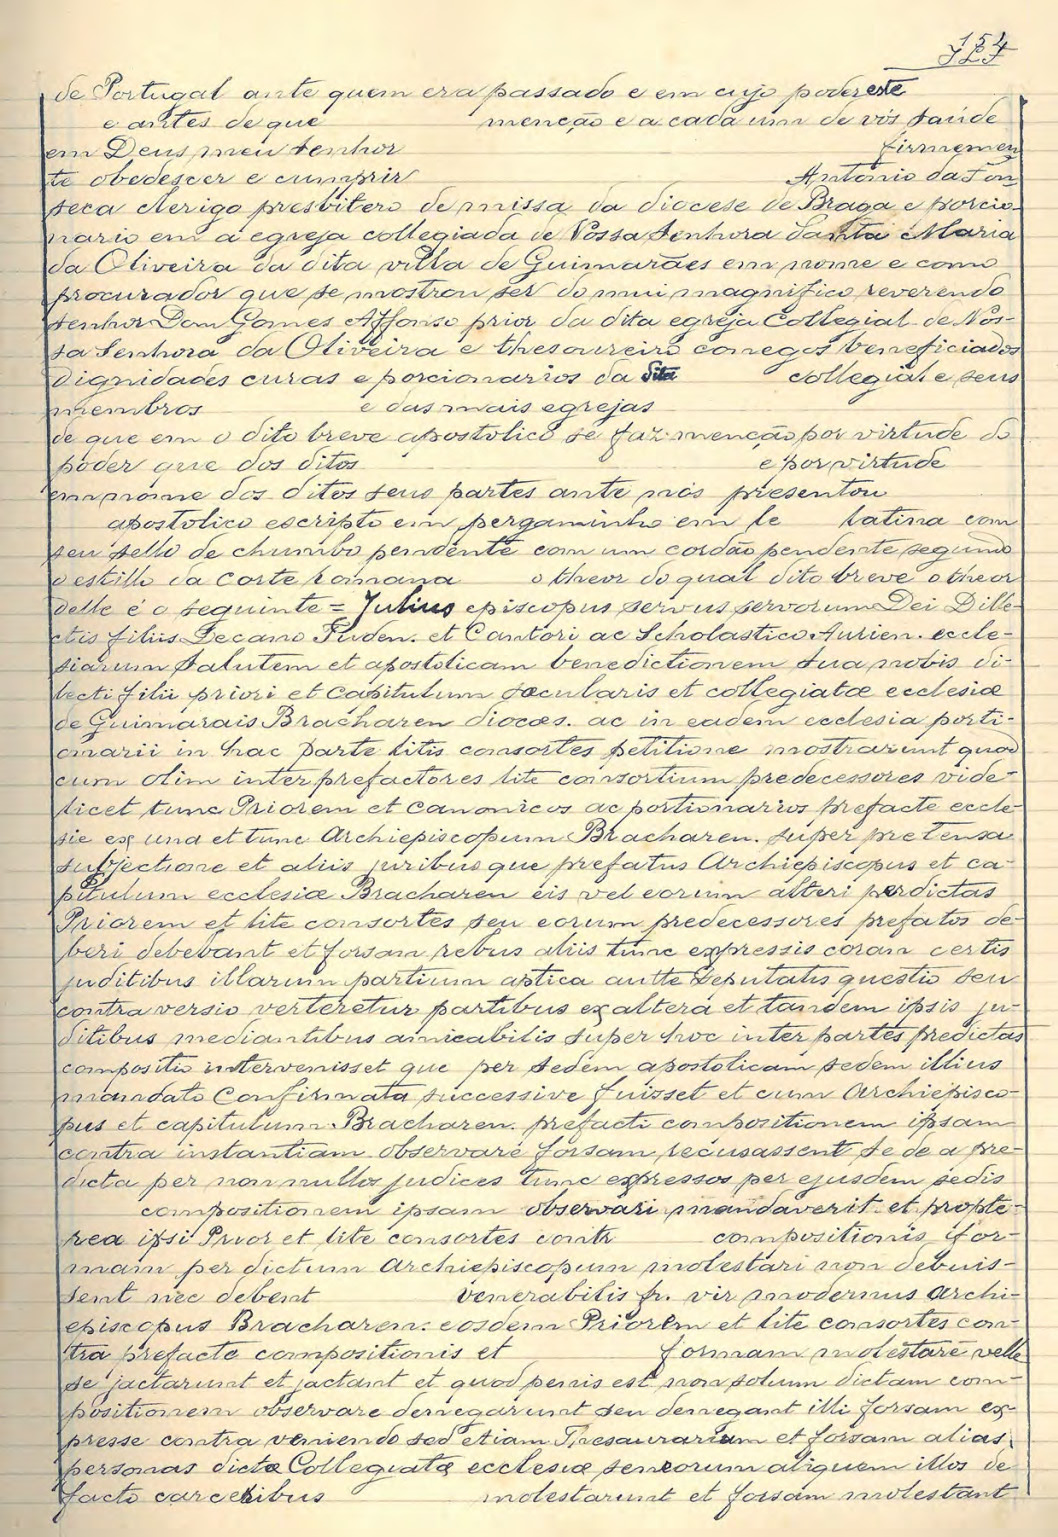 154
de Portugal ante quem era passado e em cujo poder este
e antes de que menção e a cada um de vós saúde
em Deus meu senhor firmemen
te obedescer e cumprir António da Fon
seca clerigo presbitero de missa da diocese de Braga e porcio-
nario em a egreja collegiada de Nossa Senhora Santa Maria
da Oliveira da dita villa de Guimarães em nome e como
procurador que se mostrou ser do mui magnifico reverendo
senhor Dom Gomes Affonso prior da dita egreja Collegial de Nos-
sa Senhora da Oliveira e thesoureiro conegos beneficiados
dignidades curas e porcionarios da dita collegial e seus
membros e das mais egrejas
de que em o dito breve apostolico se faz menção por virtude do
poder que dos ditos e por virtude
em nome dos ditos seus partes ante nós presentou
apostolico escripto em pergaminho em le latina com
seu sello de chumbo pendente com um cordão pendente segundo
o estillo da corte romana o theor do qual dito breve o theor
delle é o seguinte = Julius episcopus servus servorum Dei Dille-
ctis filiis Decano Tuden. et Cantori ac Scholastico Aurien. eccle-
siarum salutem et apostolicam benedictionem sua nobis di-
lecti filii priori et capitulum sæcularis et collegiatæ ecclesiæ
de Guimarais Bracharen dioces. ac in eadem ecclesia porti-
onarii in hac parte litis consortes petitione mostrarunt quod
cum olim inter prefactores lite consortium predecessores vide-
licet tunc Priorem et canonicos ac portionarios prefacte eccle-
sie ex una et tunc Archiepiscopum Bracharen. super pretensa
subjectione et aliis juribus que prefatus Archiepiscopus et ca-
pitulum ecclesiæ Bracharen eis vel eorum alteri perdictas
Priorem et lite consortes seu eorum predecessores prefatos de-
beri debebant et forsam rebus aliis tunc expressis coram certis
juditibus illarum partium aptica autte deputatis questio seu
contraversio verteretur partibus ex altera et tandem ipsis ju-
ditibus mediantibus amicabilis super hoc inter partes predictas
compositio intervenisset que per sedem apostolicam sedem illius
mandato Confirmata successive fuisset et cum Archiepisco-
pus et capitulum Bracharen. prefacti compositionem ipsam
contra instantiam observare forsam recusassent se de a pre-
dicta per nonnullos judices tunc expressos per ejusdem sedis
compositionem ipsam observari mandaverit et propte-
rea ipsi Prior et lite consortes contr compositionis for-
mam per dictum Archiepiscopum molestari non debuis-
sent nec debent venerabilis fr. vir modernus Archi-
episcopus Bracharen. eosdem Priorem et lite consortes con-
tra prefacte compositionis et formam molestare velle
se jactarunt et jactant et quod penis est non solum dictam com-
positionem observare denegarunt seu denegant illi forsam ex-
presse contra veniendo sed etiam Thesaurarium et forsam alias
personas dictæ Collegiatæ ecclesiæ seu eorum aliquem illos de
facto carceribus molestarunt et forsam molestant